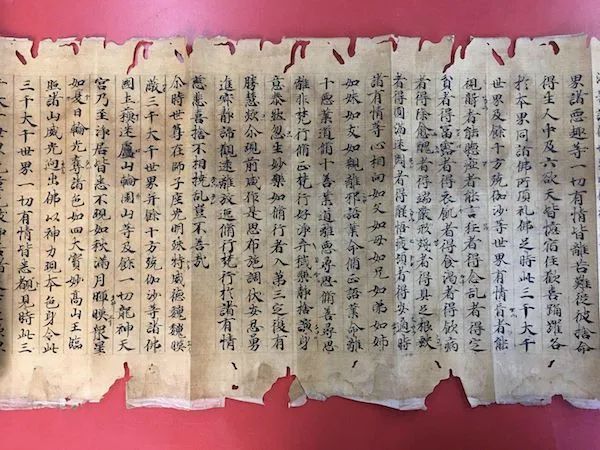 界諸惡趣等一切有情皆離苦難從彼捨命
得生人中及六欲天皆憶宿住歡喜踊躍各
於本界同詣佛所頂礼佛足時此三千大千
世界及餘十方殑伽沙等世界有情盲者能
視聾者能聽瘂者能言狂者得念亂者得定
貧者得富露者得衣飢者得食渴者得飲病
者得除愈醜者得端嚴形殘者得具足根缺
者得圓滿迷悶者得醒悟疲頓者得安適時
諸有情等心相向如父如母如兄如弟如姉
如妹如友如親離邪語業命脩正語業命離
十惡業道脩十善業道離惡尋思脩善尋思
離非梵行脩正梵行好淨弃穢樂靜捨諠身
意泰然忽生妙樂如脩行者入第三定復有
勝慧欻尒現前咸作是思布施調伏安忍勇
進寂靜諦觀遠離放逸脩行梵行於諸有情
慈悲喜捨不相撓亂豈不善哉
尒時世尊在師子座光明殊特威德巍巍暎
蔽三千大千世界并餘十方殑伽沙等諸佛
國土蘇迷盧山輪圍山等及餘一切龍神天
宮乃至淨居皆悉不現如秋滿月暉暎衆星
如夏日輪光奪諸色如四大寶妙高山王臨
照諸山威光迥出佛以神力現本色身令此
三千大千世界一切有情皆悉覩見時此三